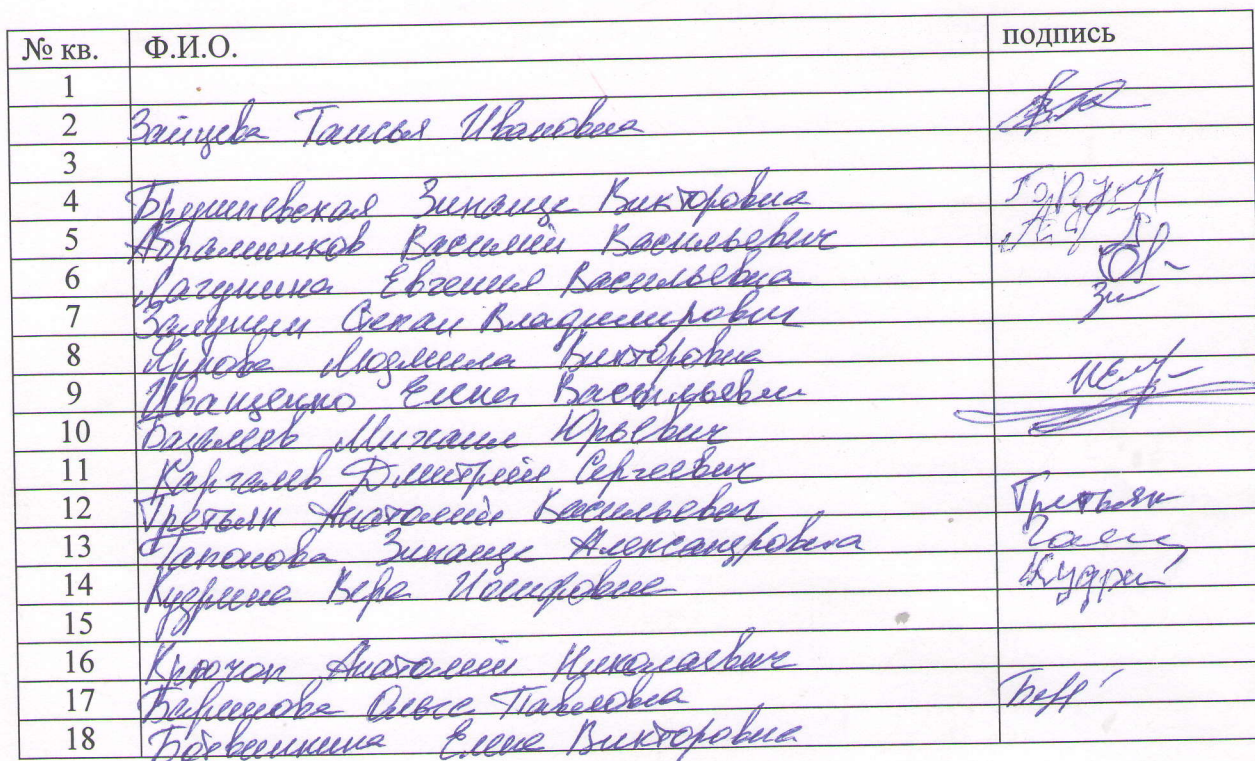 № кв. Ф.И.О. подпись
1
2 Зайцева Таисья Ивановна
3
4 Брушневская Зинаида Викторовна
5 Абраменков Василий Васильевич
6 Лагунина Евгения Васильевна
7 Степан Владимирович
8 Людмила Викторовна
9 Иващенко Елена Васильевна
10 Михаил Юрьевич
11 Каргалев Дмитрий Сергеевич
12 Третьяк Анатолий Васильевич Третьяк
13 Тапонова Зинаида Александровна
14 Кудрина Вера Иосифовна Кудри
15
16 Крючок Анатолий Николаевич
17 Баринова Ольга Павловна
18 Елена Викторовна